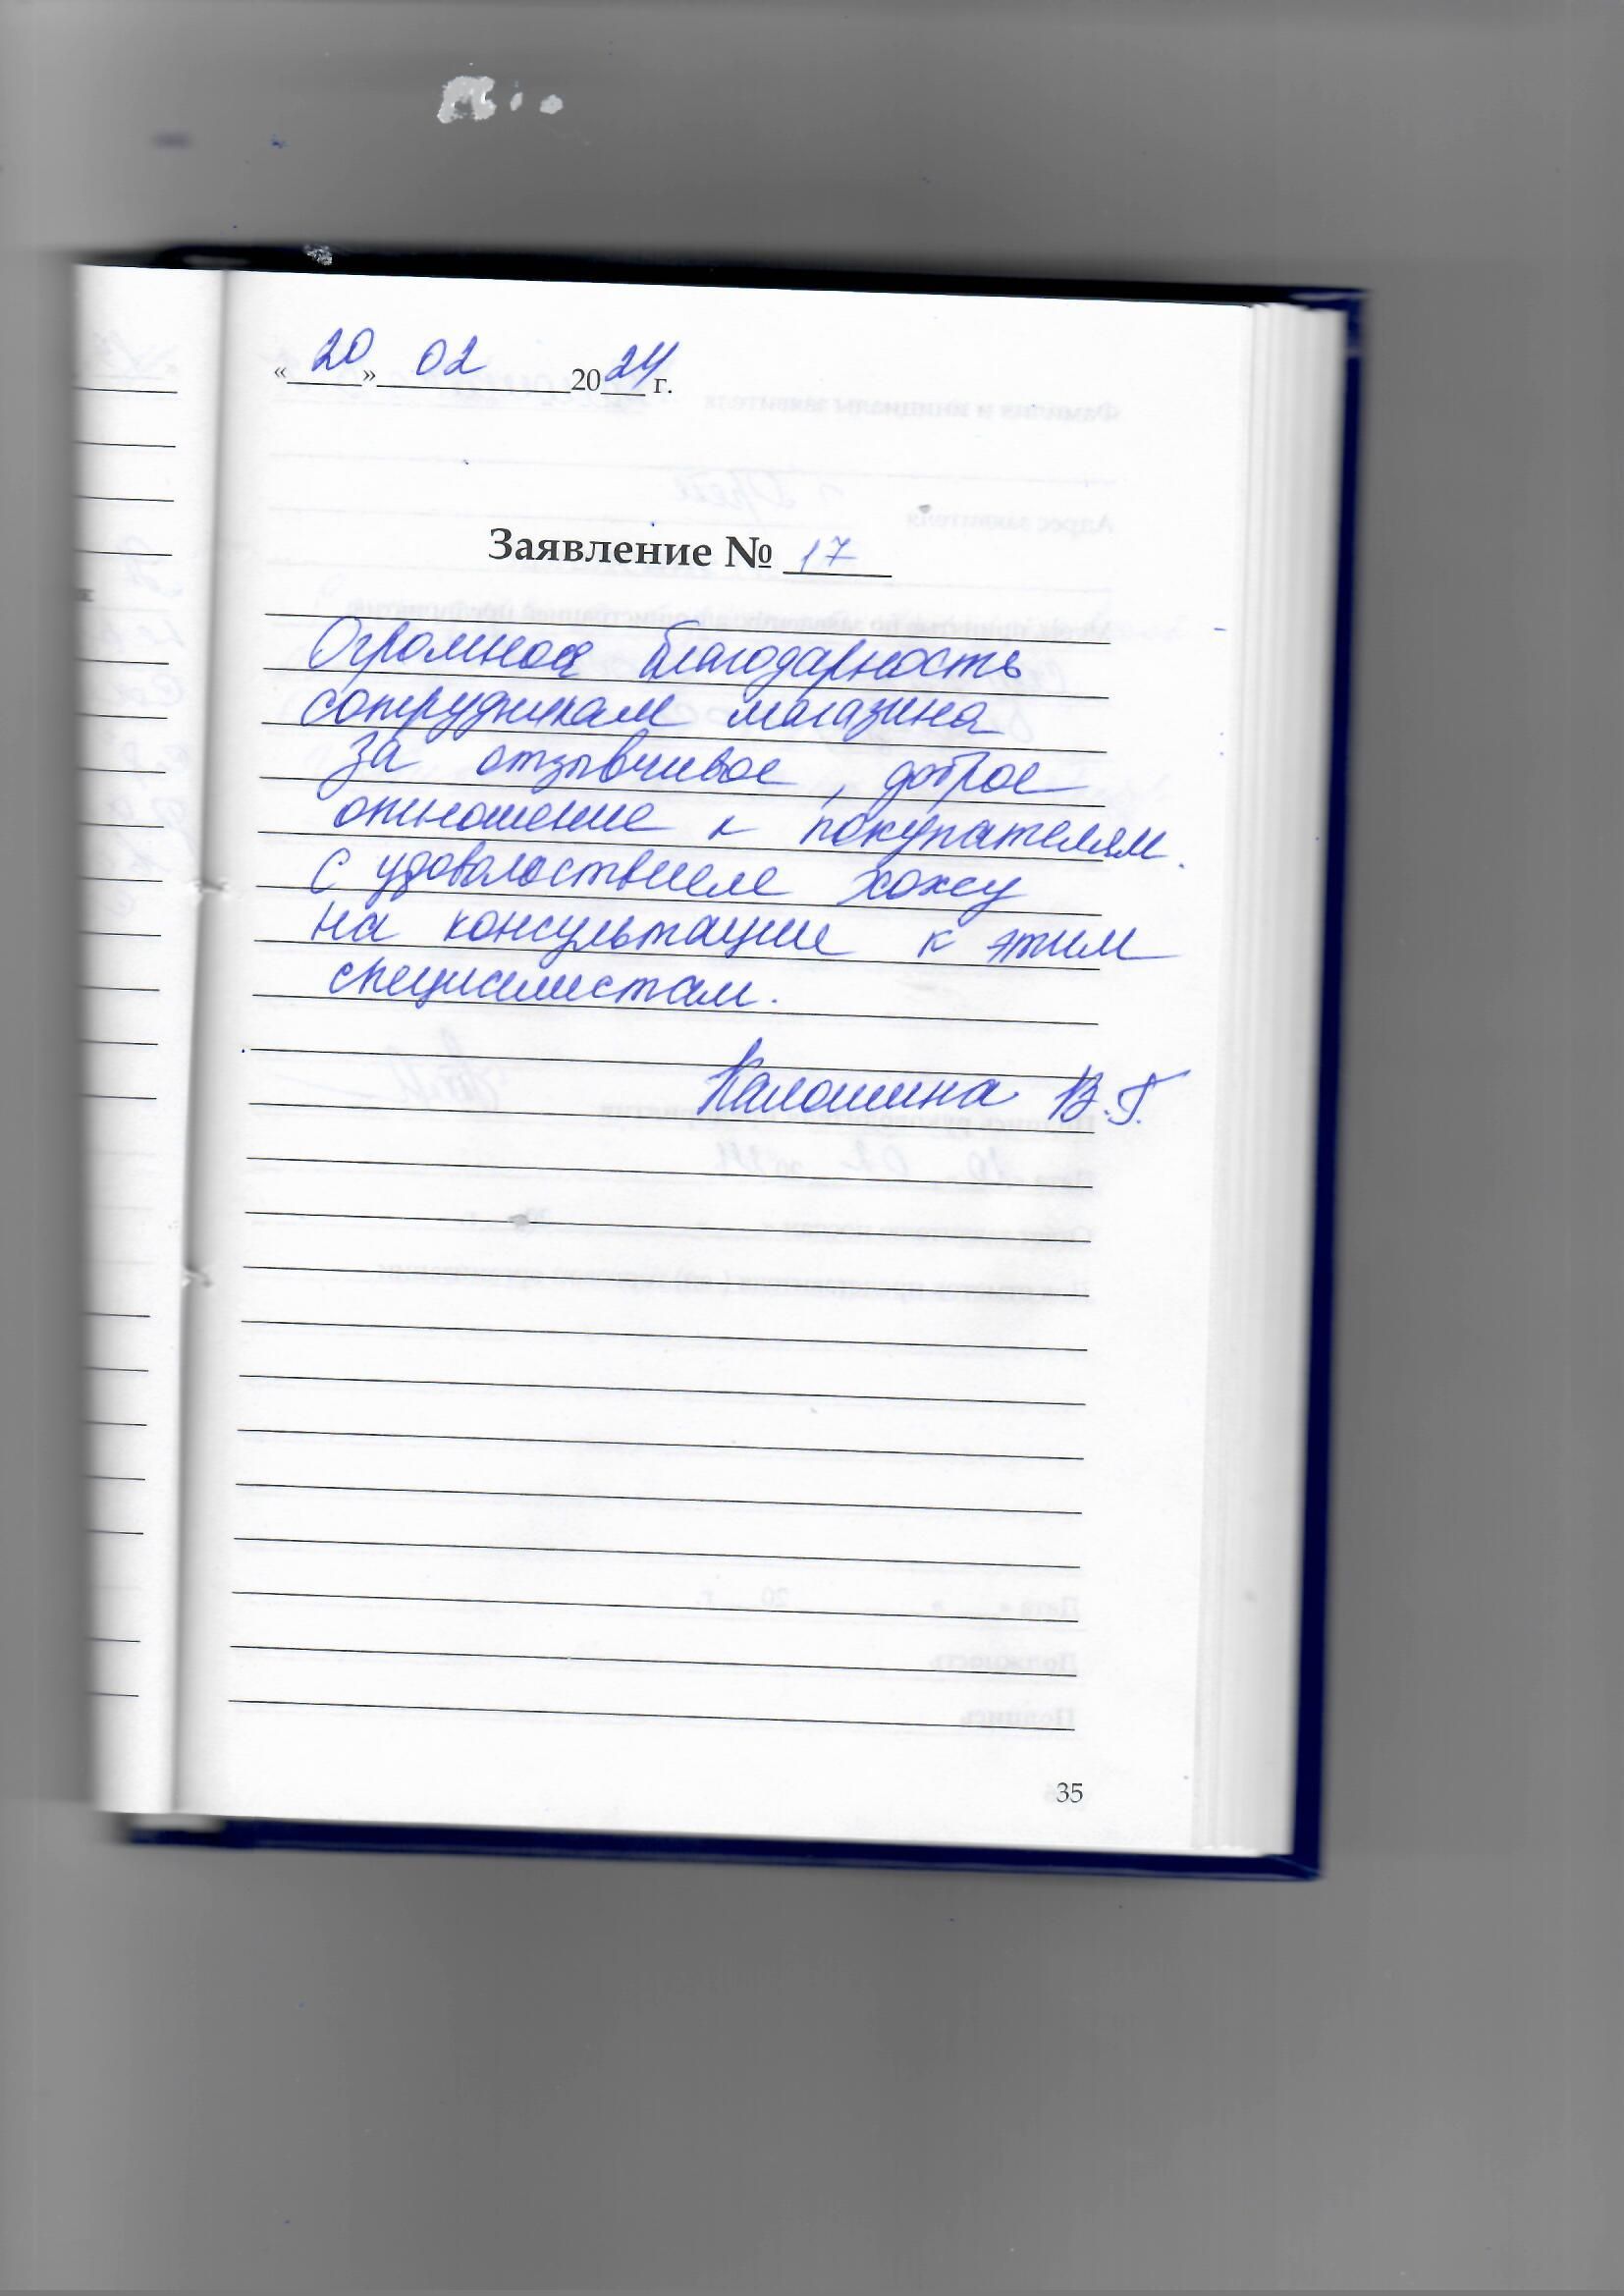 «20» 02 2024 г.
Заявление № 17
Огромная благодарность
сотрудникам магазина
за отзывчивое, доброе
отношение к покупателям.
С удовольствием хожу
на консультации к этим
специалистам.
Калошина В.Г.
35